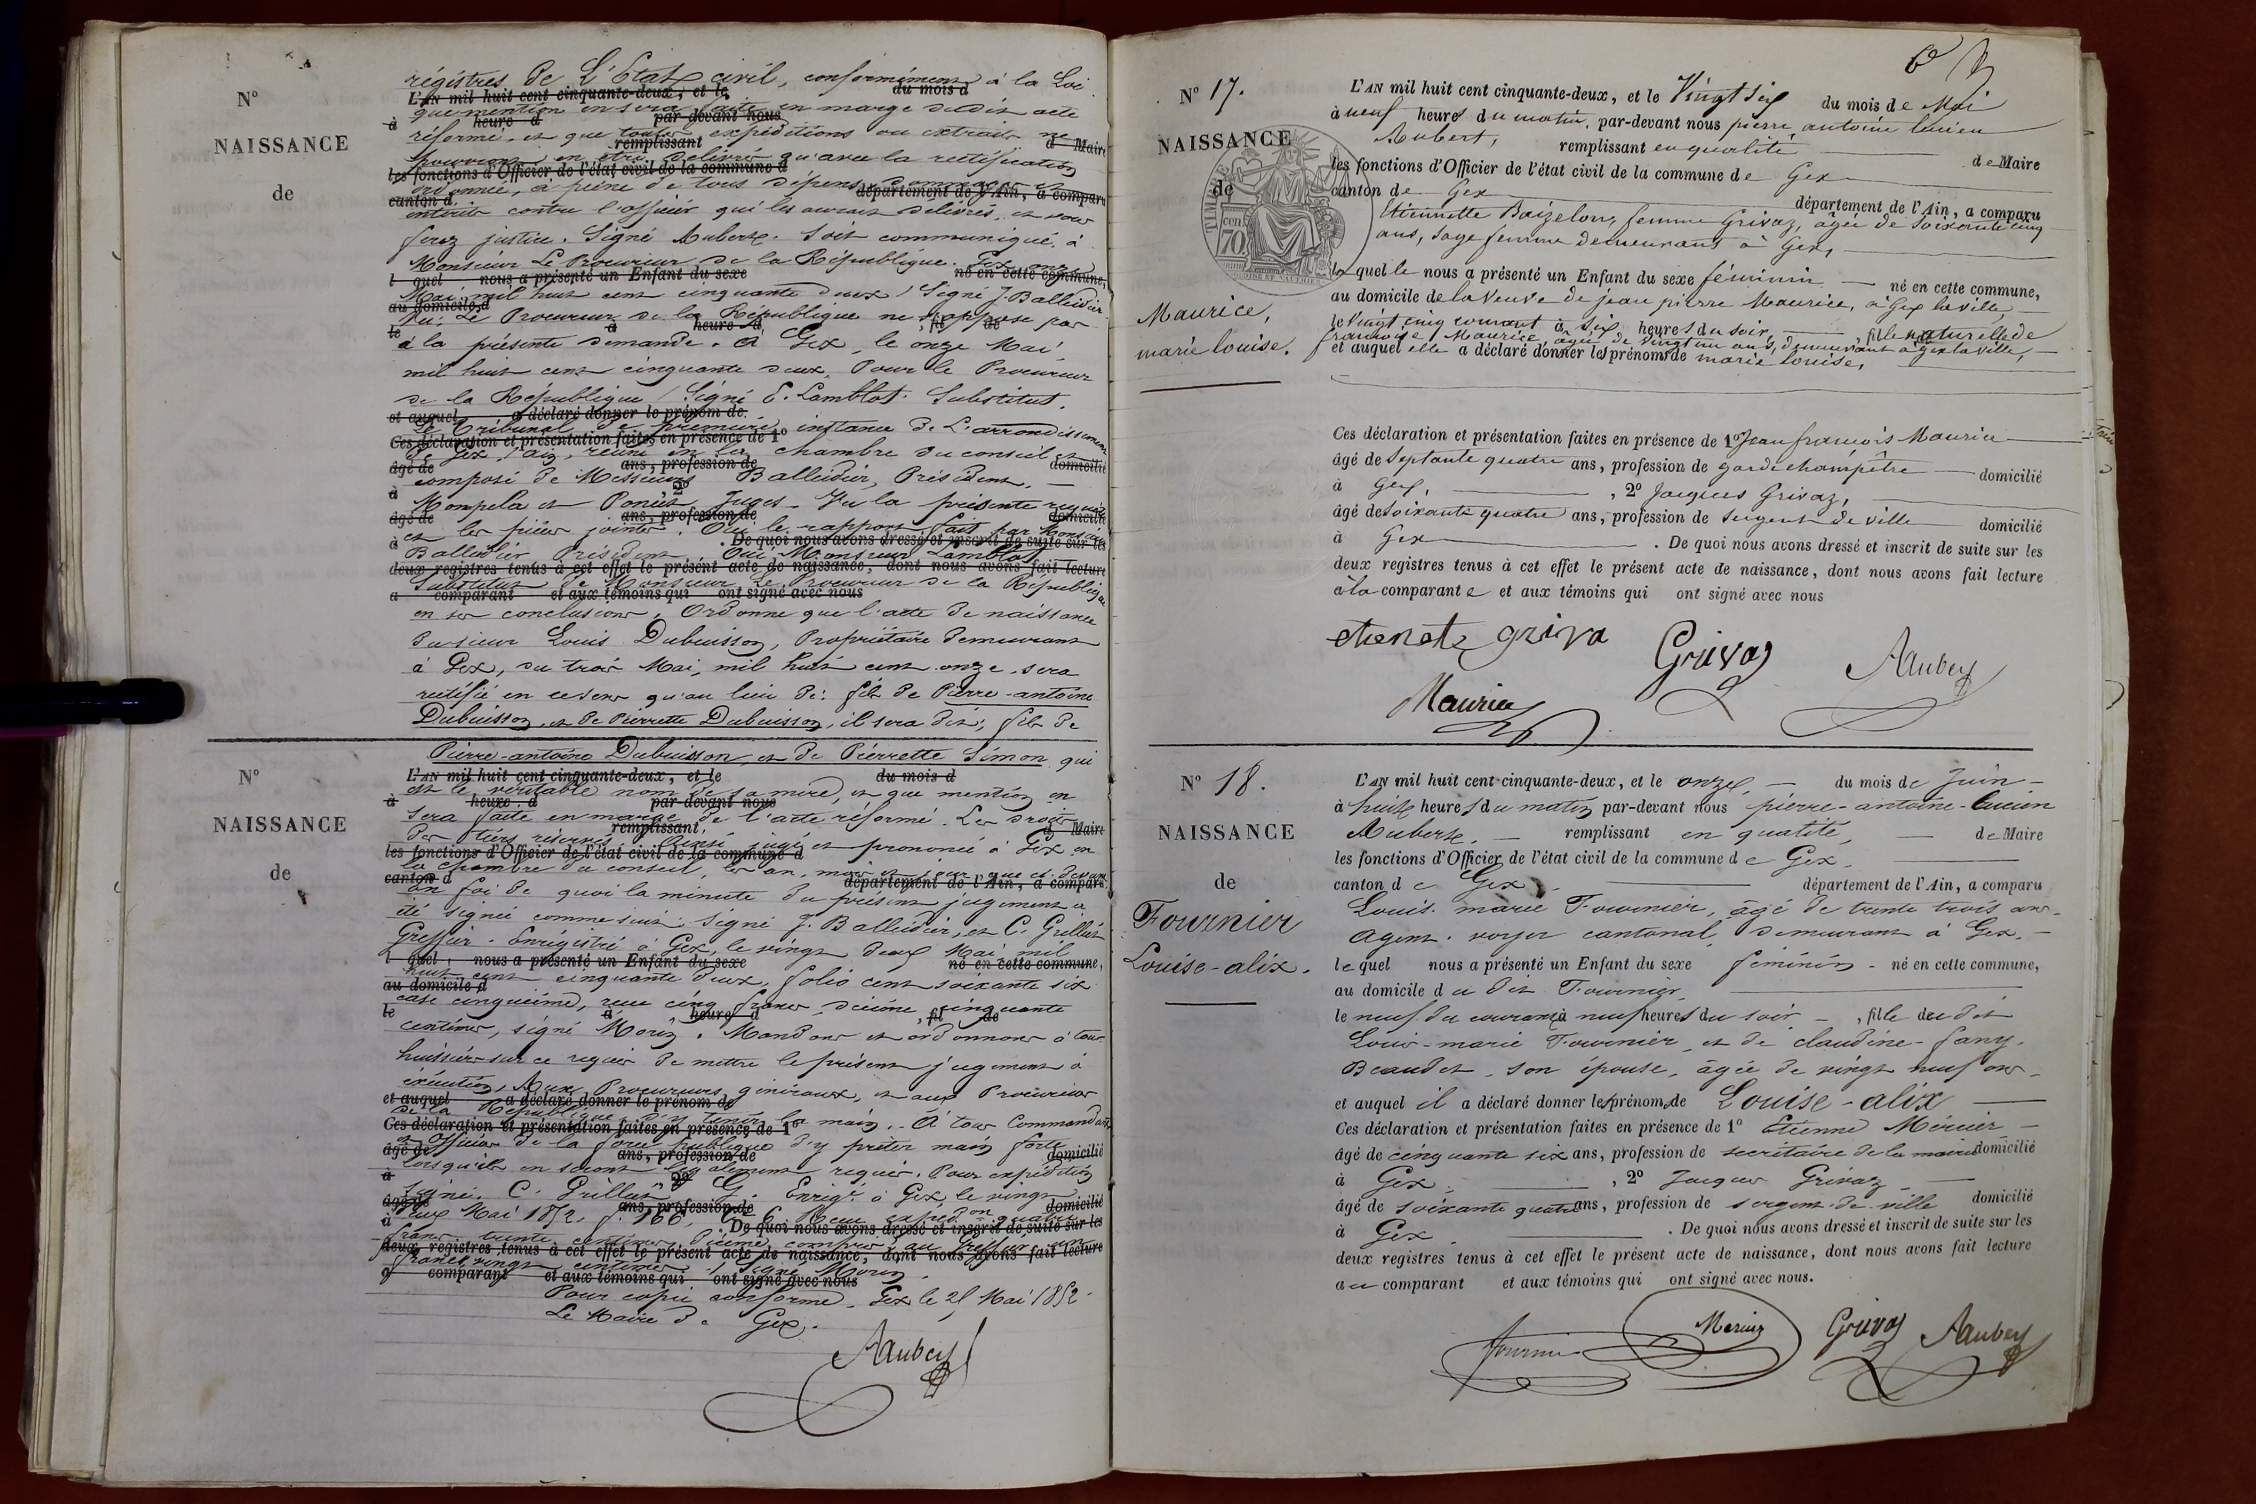 régistres de L'Etat civil, conformément à la Loi
L'AN mil huit cent cinquante-deux, et le du mois d
que mention en sera faite en marge dudit acte
à heure d par devant nous
réformé, et que toutes expéditions ou extraits ne
remplissant d Maire
pourront en être délivré qu'avec la rectification
les fonctions d'Officier de l'état civil de la commune d
ordonnée, à peine de tous dépens, dommages et
canton d département de l'Ain, a comparu
intérêts contre l'officier qui les aurait délivrés, et vous
ferez justice. Signé Aubery. Soit communiqué à
Monsieur Le Procureur de la République. Gex onze
l quel nous a présenté un Enfant du sexe né en cette commune,
Mai mil huit cent cinquante deux / Signé J. Balleidier
au domicile d
Vu: Le Procureur de la République ne s'oppose pas
le à heure d , fil de
à la présente demande. à Gex, le onze Mai,
mil huit cent cinquante deux, Pour le Procureur
de la République / Signé E. Lamblot. Substitut.
et auquel a déclaré donner le prénom de
Le Tribunal de première instance de L'arrondissement
Ces déclaration et présentation faites en présence de 1°
de Gex, Ain, réuni en la chambre du conseil et
âgé de ans, profession de domicilié
composé de Messieurs Balleidier, Président,
à 2°
Mompela et Poncet Juges. Vu la présente requête
âgé de ans, profession de domicilié
et les pièces jointes. Oui le rapport fait par Monsieur
à . De quoi nous avons dressé et inscrit de suite sur les
Balleidier Président. Oui Monsieur Lamblot
deux registres tenus à cet effet le présent acte de naissance, dont nous avons fait lecture
Substitut de Monsieur Le Procureur de la République
a comparant et aux témoins qui ont signé avec nous
en ses conclusions, Ordonne que l'acte de naissance
du sieur Louis Dubuisson, Propriétaire demeurant
à Gex, du trois Mai, mil huit cent onze, sera
rectifié en ce sens qu'au lieu de: fils de Pierre-antoine
Dubuisson, et de Pierrette Dubuisson, il sera dit; fils de
N°
NAISSANCE
de
Pierre-antoine Dubuisson, et de Pierrette Simon qui
L'AN mil huit cent cinquante-deux, et le du mois d
est le véritable nom de sa mère, et que mention en
à heure d par devant nous
sera faite en marge de l'acte réformé. Les droits
remplissant d Maire
des tiers réservés. Ainsi jugé et prononcé à Gex en
les fonctions d'Officier de l'état civil de la commune d
la chambre du conseil, les an, mois et jour que ci devant
canton d département de l'Ain, a comparu
En foi de quoi la minute du présent jugement a
été signée comme suit: Signé J. Balleidier, et C. Grillet
Greffier. Enrégistré à Gex, le vingt deux Mai mil
l quel nous a présenté un Enfant du sexe né en cette commune,
huit cent cinquante deux, folio cent soixante six
au domicile d
case cinquième, reçu cinq francs, décime cinquante
le à heure d , fil de
centimes, signé Morin. Mandons et ordonnons à tous
huissiers sur ce requis de mettre le présent jugement à
exécution, Aux Procureurs généraux, et aux Procureurs
et auquel a déclaré donner le prénom de
de la République d'y tenir la main. A tous Commandants
Ces déclaration et présentation faites en présence de 1°
et Officiers de la force publique d'y prêter main forte
âgé de ans, profession de domicilié
lorsqu'ils en seront légalement requis. Pour expédition
à 2°
Signé. C. Grillet G. Enrigt. à Gex le vingt
âgé de ans, profession de domicilié
deux Mai 1852, f. 166, Reçu quatre
à . De quoi nous avons dressé et inscrit de suite sur les
francs trente centimes, décime compris au Greffier un
deux registres tenus à cet effet le présent acte de naissance, dont nous avons fait lecture
franc vingt centimes / Signé Morin
a comparant et aux témoins qui ont signé avec nous
Pour copie conforme. Gex le 25 Mai 1852.
Le Maire de Gex.
AAubery
N°
NAISSANCE
de
N° 17.
NAISSANCE
de
Maurice,
marie louise.
TIMBRE
70 cen
L'AN mil huit cent cinquante-deux, et le Vingt Six du mois de Mai
à neuf heures du matin, par-devant nous pierre antoine lucien
Aubert, remplissant en qualité de Maire
les fonctions d'Officier de l'état civil de la commune de Gex
canton de Gex département de l'Ain, a comparu
Etiennette Baizelon, femme Grivaz, âgée de Soixante cinq
ans, Sage femme demeurant à Gex,
la quelle nous a présenté un Enfant du sexe féminin né en cette commune,
au domicile de la Veuve de jean pierre Maurice, à Gex la ville
le Vingt cinq courant à Six heures du soir, , fille naturelle de
françoise Maurice, âgée de vingt un ans, demeurant à gex la ville,
et auquel elle a déclaré donner les prénoms de marie louise,
Ces déclaration et présentation faites en présence de 1° Jean françois Maurice
âgé de Septante quatre ans, profession de garde champêtre domicilié
à Gex, , 2° Jacques Grivaz,
âgé de Soixante quatre ans, profession de sergent de ville domicilié
à Gex . De quoi nous avons dressé et inscrit de suite sur les
deux registres tenus à cet effet le présent acte de naissance, dont nous avons fait lecture
à la comparante et aux témoins qui ont signé avec nous
etienete griva Grivaz AAubery
Maurice
N° 18.
NAISSANCE
de
Fournier
Louise-alix.
L'AN mil huit cent cinquante-deux, et le onze, du mois de Juin
à huit heures du matin par-devant nous pierre-antoine-Lucien
Aubert, remplissant en qualité, de Maire
les fonctions d'Officier de l'état civil de la commune de Gex.
canton de Gex. département de l'Ain, a comparu
Louis marie Fournier, âgé de trente trois ans,
Agent-voyer cantonal, demeurant à Gex.
lequel nous a présenté un Enfant du sexe féminin né en cette commune,
au domicile du dit Fournier
le neuf du courant à neuf heures du soir , fille du dit
Louis-marie Fournier, et de claudine-fany
Beaudet, son épouse, âgée de vingt neuf ans
et auquel il a déclaré donner les prénoms de Louise-alix
Ces déclaration et présentation faites en présence de 1° Etienne Mérier
âgé de cinquante six ans, profession de secrétaire de la mairie domicilié
à Gex. , 2° Jacques Grivaz
âgé de soixante quatre ans, profession de sergent de ville domicilié
à Gex . De quoi nous avons dressé et inscrit de suite sur les
deux registres tenus à cet effet le présent acte de naissance, dont nous avons fait lecture
au comparant et aux témoins qui ont signé avec nous.
Fournier Merier Grivaz AAubery